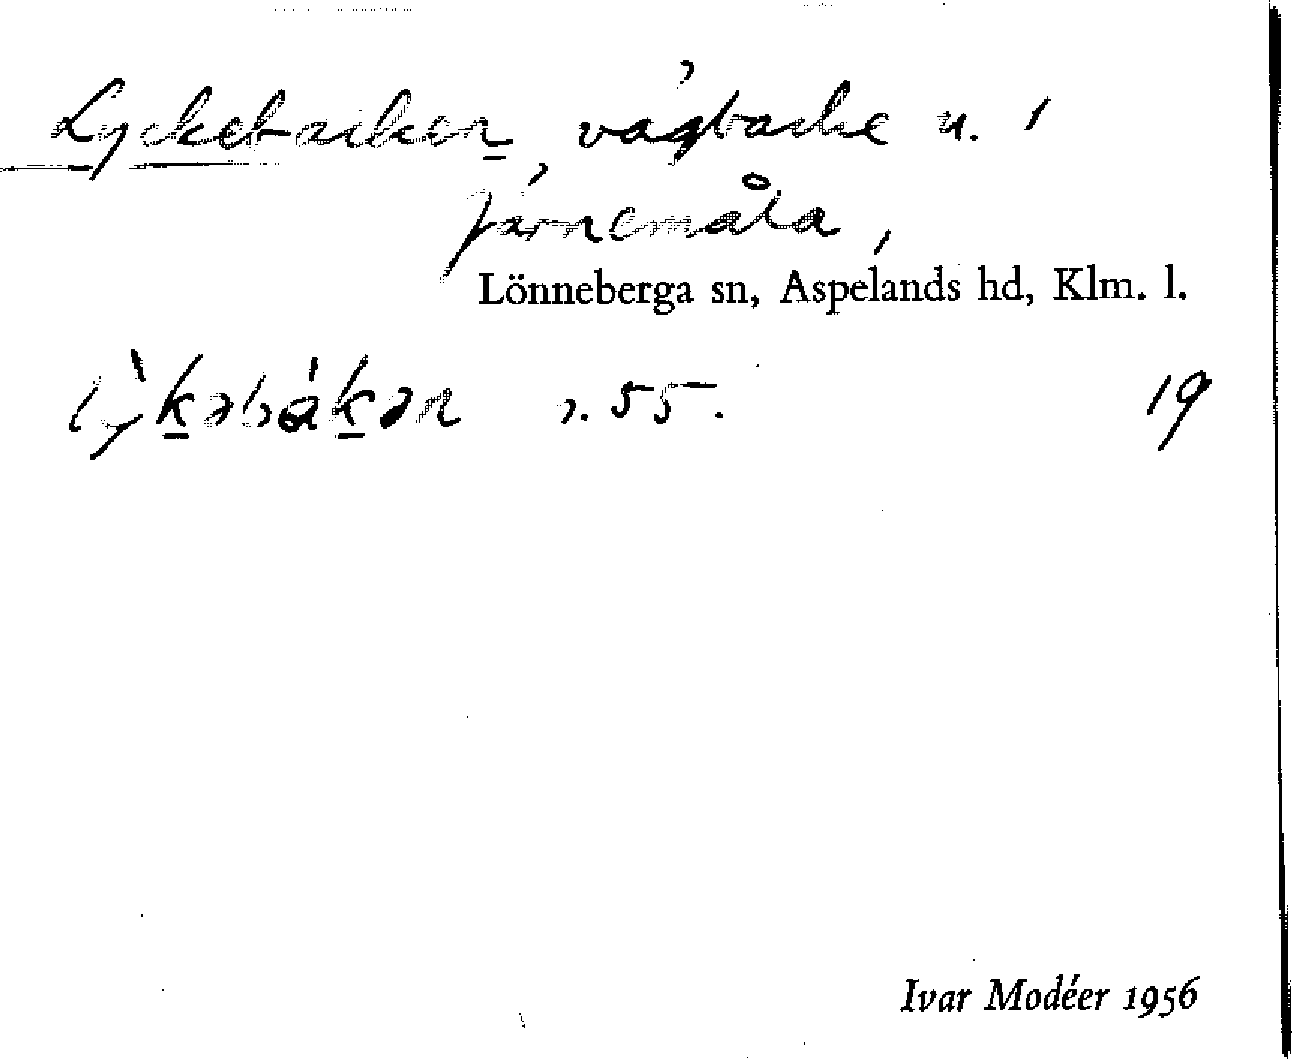 Lyckebacken, vägbacke n. 1
Järnemåla,
Lönneberga sn, Aspelands hd, Klm. l.
lỳkəbákən s. 55. 19
Ivar Modéer 1956